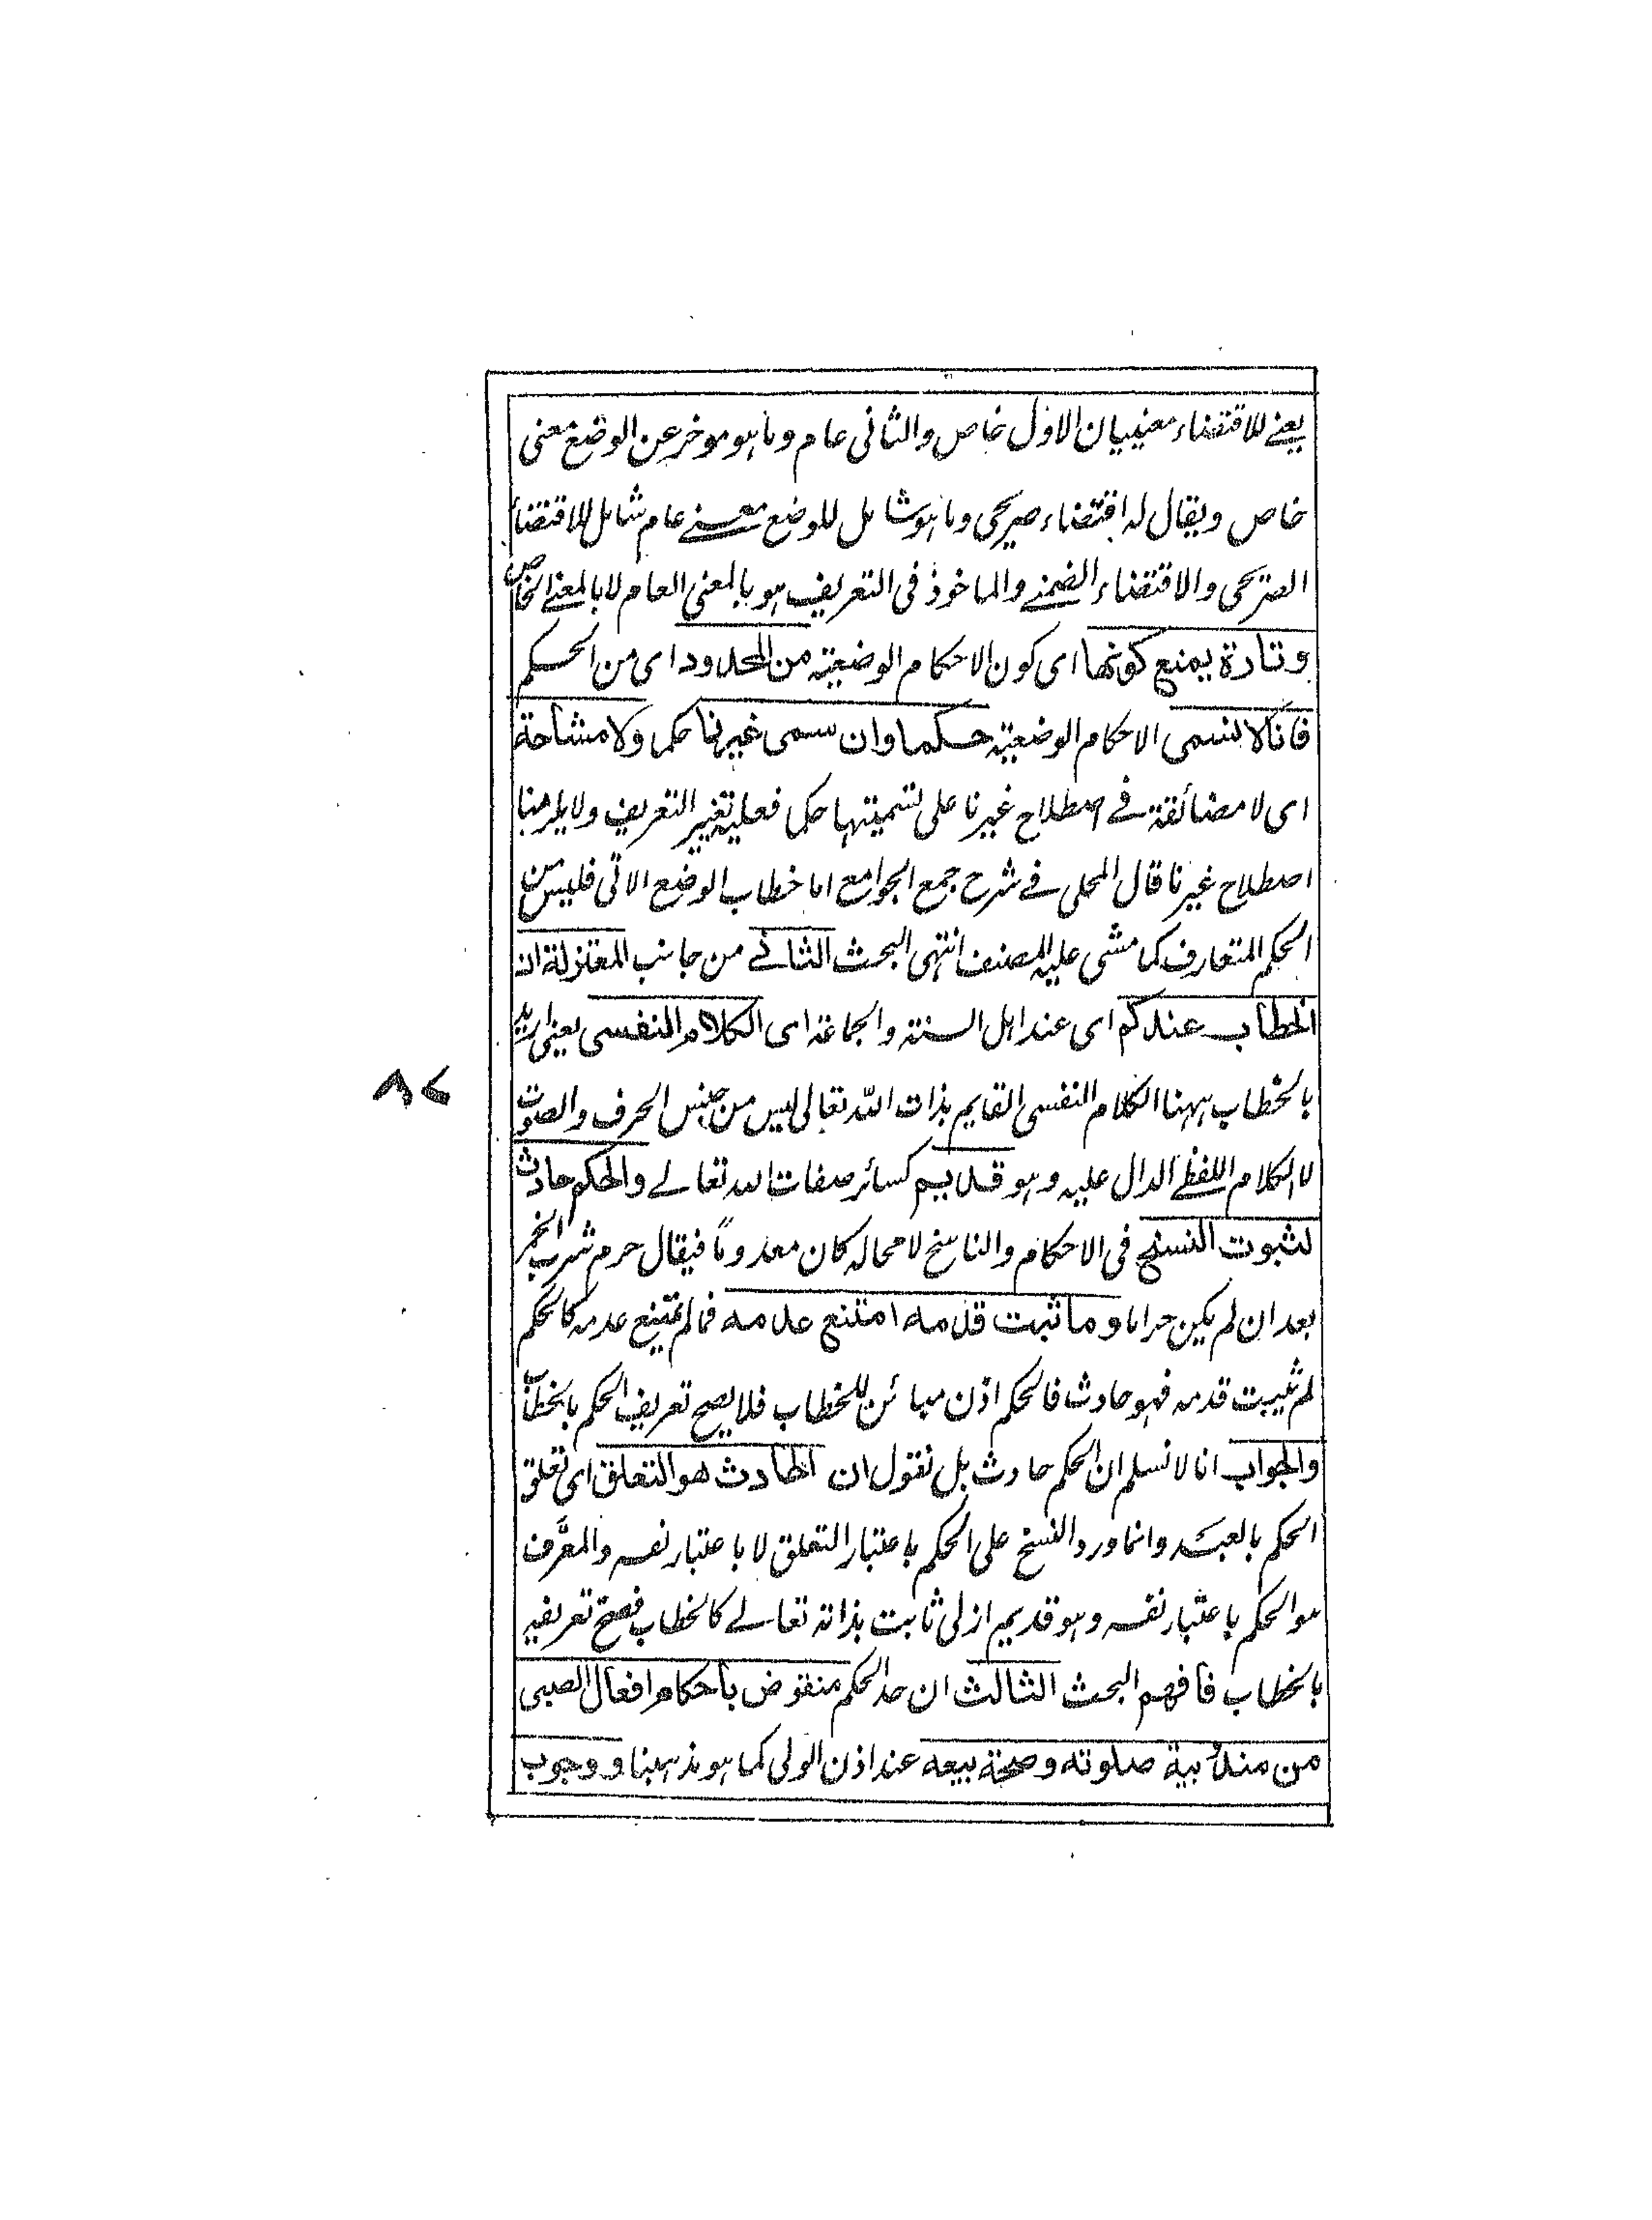 يعنى للاقتضاء معنييان الاول خاص والثانى عام وما هو موخر عن الوضع معنى
خاص ويقال له اقتضاء صريحى وما هو شامل للوضع معنى عام شامل للاقتضاء
الصريحى والاقتضاء الضمنى والماخوذ فى التعريف هو بالمعنى العام لا بالمعنى الخاص
وتارة يمنع كونها اى كون الاحكام الوضعية من المحدود اى من الحكم
فانا لا نسمى الاحكام الوضعية حكما وان سمى غيرنا حكما ولا مشاحة
اى لا مضائقة فى اصطلاح غيرنا على تسميتها حكما فعليه تغيير التعريف ولا يلزمنا
اصطلاح غيرنا قال المحلى فى شرح جمع الجوامع اما خطاب الوضع الاتى فليس من
الحكم المتعارف كما مشى عليه المصنف انتهى البحث الثانى من جانب المعتزلة ان
الخطاب عندكم اى عند اهل السنة والجماعة اى الكلام النفسى يعنى اريد
بالخطاب ههنا الكلام النفسى القايم بذات الله تعالى ليس من جنس الحرف والصوت
لا الكلام اللفظى الدال عليه وهو قديم كسائر صفات الله تعالى والحكم حادث
لثبوت النسخ فى الاحكام والناسخ لا محاله كان معدوماً فيقال حرم شرب الخمر
بعد ان لم يكن حراما وما ثبت قدمه امتنع عدمه فما لم يمتنع عدمه كالحكم
لم يثبت قدمه فهو حادث فالحكم اذن مبائن للخطاب فلا يصح تعريف الحكم بالخطاب
والجواب انا لا نسلم ان الحكم حادث بل نقول ان الحادث هو التعلق اى تعلق
الحكم بالعبد وانما ورد النسخ على الحكم باعتبار التعلق لا باعتبار نفسه والمعرَّف
هو الحكم باعتبار نفسه وهو قديم ازلى ثابت بذاته تعالى كالخطاب فصح تعريفه
بالخطاب فافهم البحث الثالث ان حد الحكم منقوض باحكام افعال الصبى
من مندُوبية صلوته وصحة بيعه عند اذن الولى كما هو مذهبنا و وجوب
٨٢